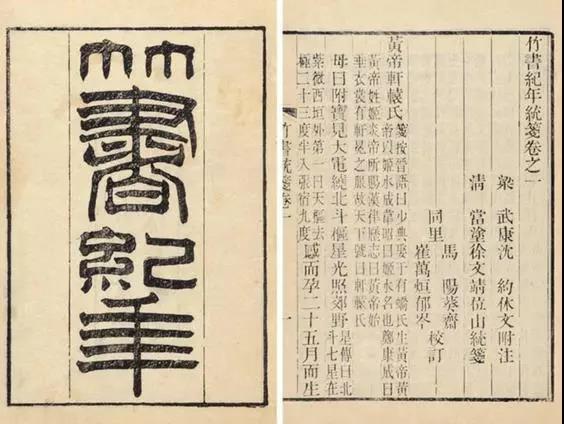 竹書紀年
竹書紀年統箋卷之一
梁　武康沈　約休文附注
清　當塗徐文靖位山統箋
馬　陽葵齋
同里　校訂
崔萬烜郁岑
黃帝軒轅氏
箋按晉語曰少典娶于有蟜氏生黃帝黃
帝以姬水成韋昭曰姬水名也鄭康成曰
黃帝姓姬炎帝所賜漢律歷志曰黃帝始
垂衣裳有軒冕之服故天下號曰軒轅氏
母曰附寶見大電繞北斗樞星光照郊野
星傳曰北
斗七星在
紫微西垣外第一曰天樞去
極二十三度半入張宿九度
感而孕二十五月而生
竹書統箋卷一
一